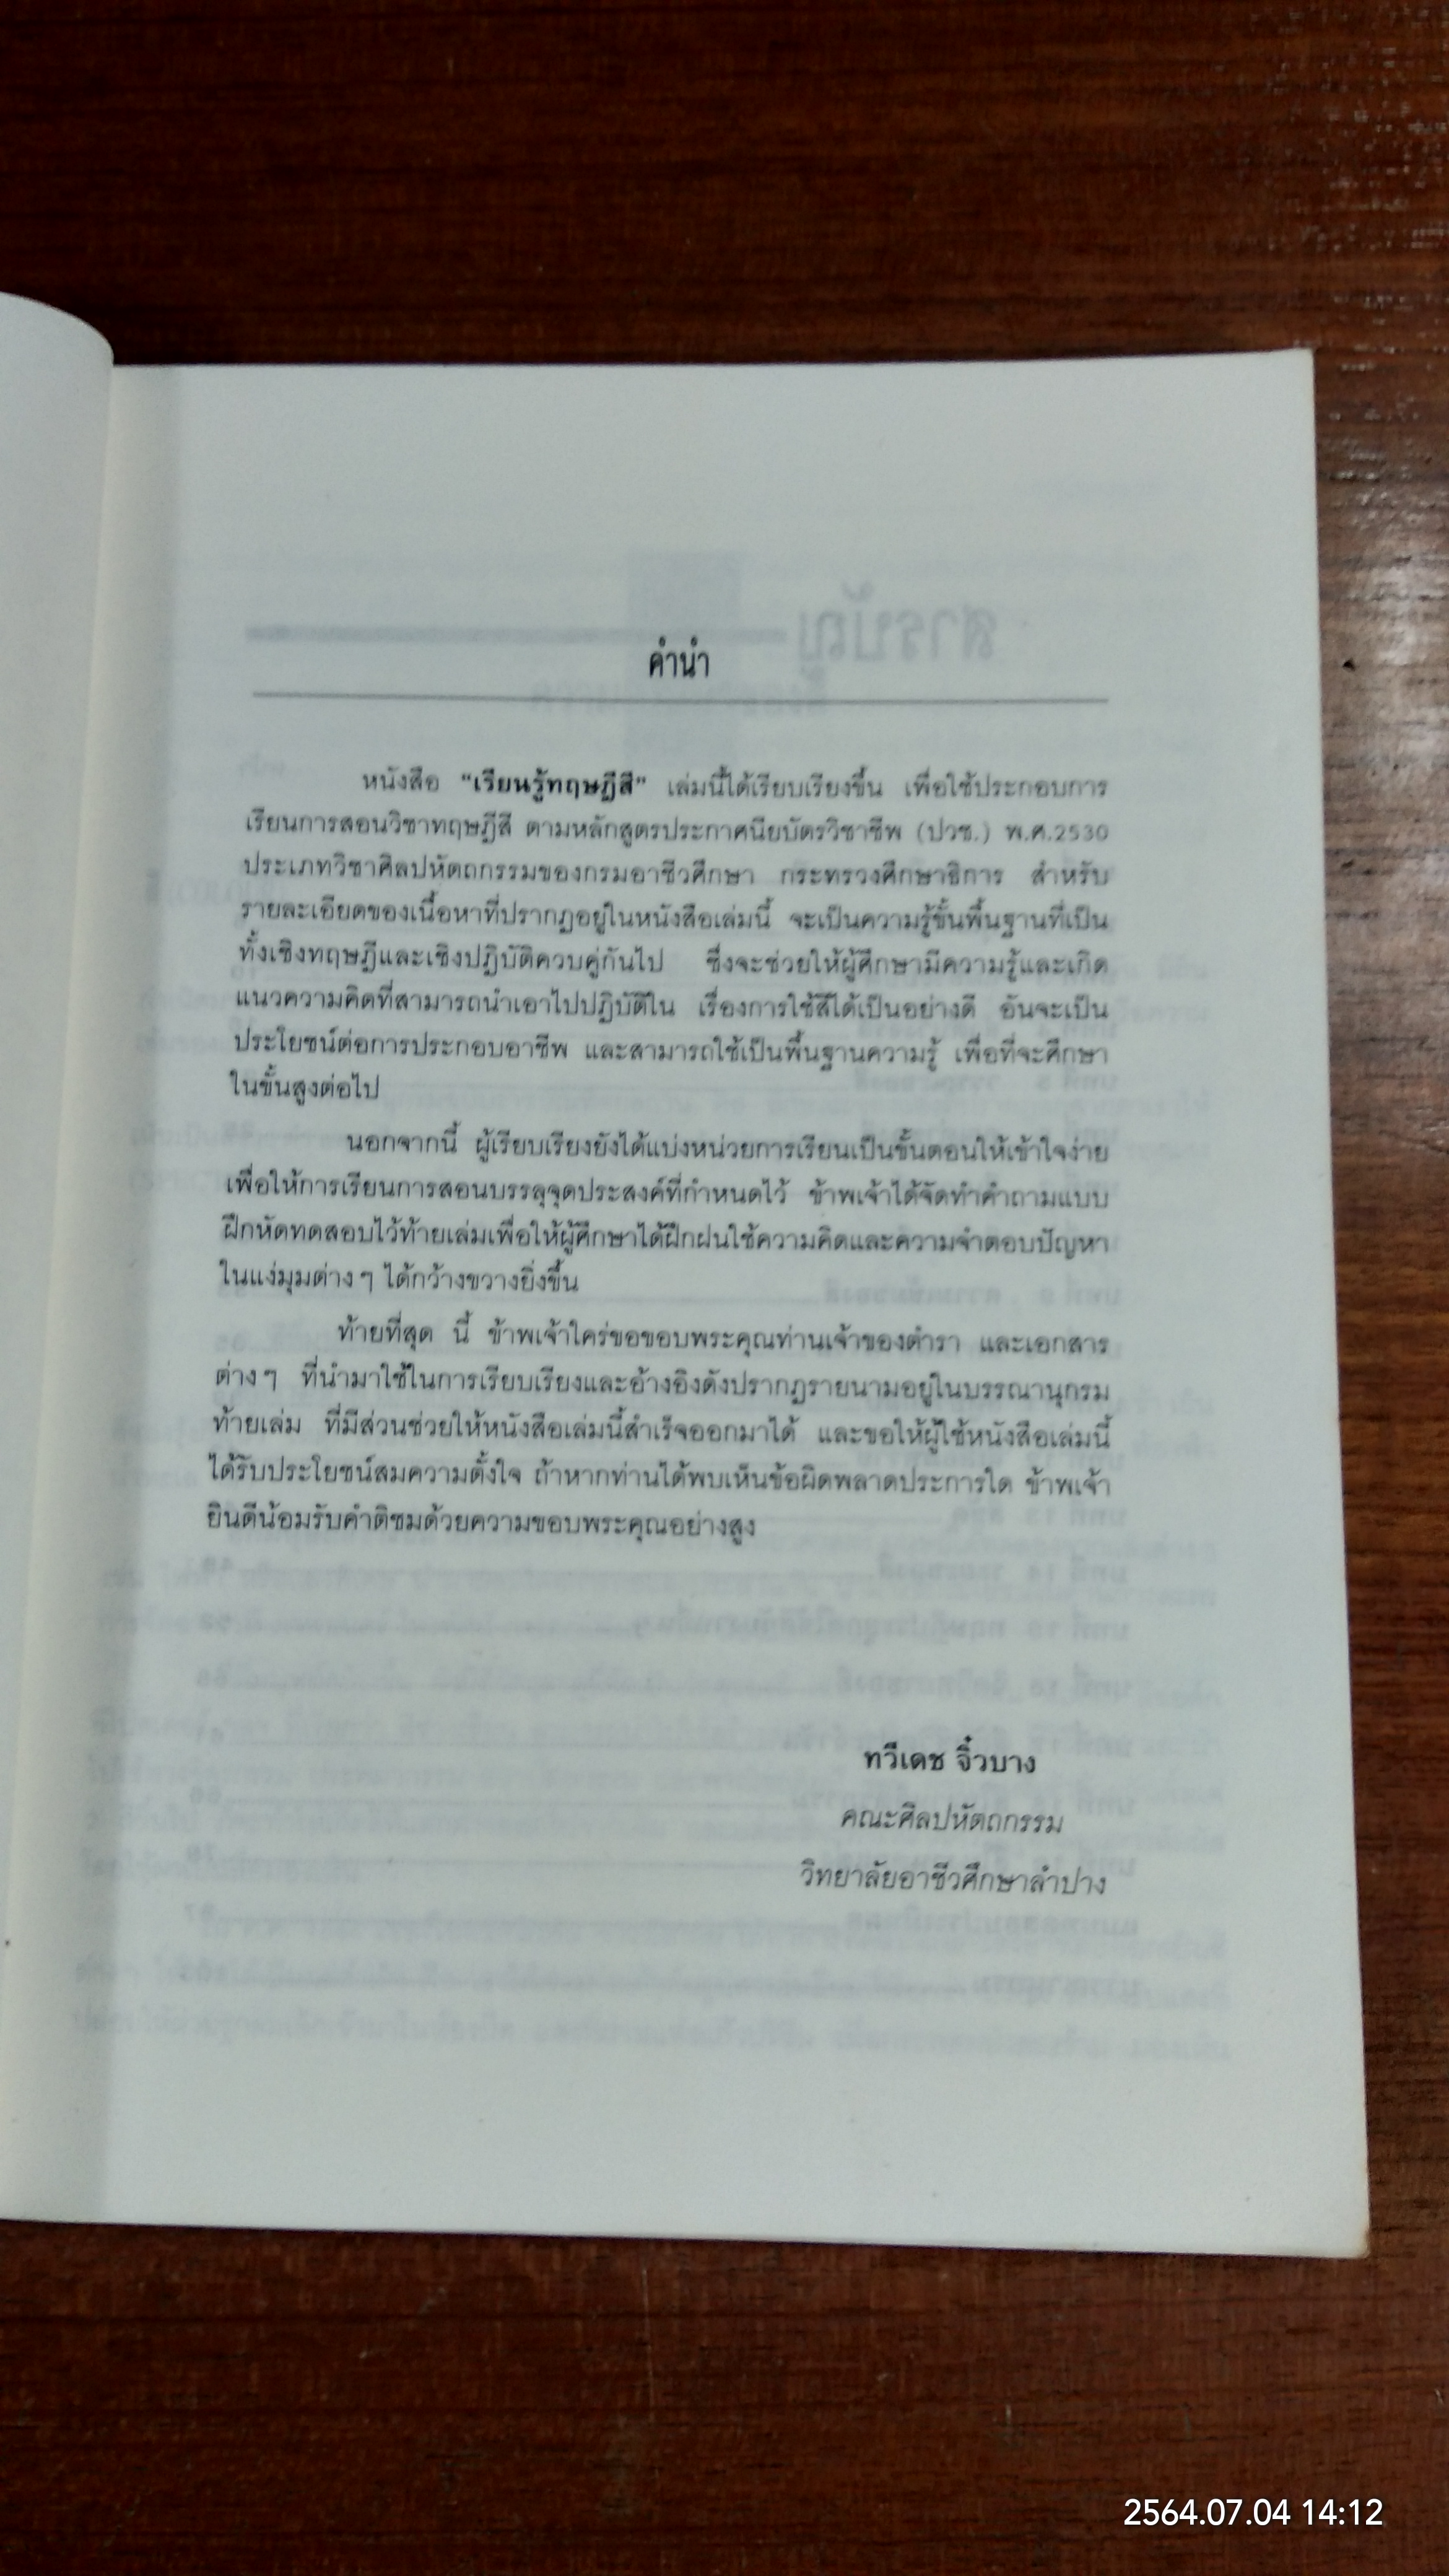 คำนำ
หนังสือ "เรียนรู้ทฤษฎีสี" เล่มนี้ได้เรียบเรียงขึ้น เพื่อใช้ประกอบการ
เรียนการสอนวิชาทฤษฎีสี ตามหลักสูตรประกาศนียบัตรวิชาชีพ (ปวช.) พ.ศ.2530
ประเภทวิชาศิลปหัตถกรรมของกรมอาชีวศึกษา กระทรวงศึกษาธิการ สำหรับ
รายละเอียดของเนื้อหาที่ปรากฏอยู่ในหนังสือเล่มนี้ จะเป็นความรู้ขั้นพื้นฐานที่เป็น
ทั้งเชิงทฤษฎีและเชิงปฏิบัติควบคู่กันไป ซึ่งจะช่วยให้ผู้ศึกษามีความรู้และเกิด
แนวความคิดที่สามารถนำเอาไปปฏิบัติใน เรื่องการใช้สีได้เป็นอย่างดี อันจะเป็น
ประโยชน์ต่อการประกอบอาชีพ และสามารถใช้เป็นพื้นฐานความรู้ เพื่อที่จะศึกษา
ในขั้นสูงต่อไป
นอกจากนี้ ผู้เรียบเรียงยังได้แบ่งหน่วยการเรียนเป็นขั้นตอนให้เข้าใจง่าย
เพื่อให้การเรียนการสอนบรรลุจุดประสงค์ที่กำหนดไว้ ข้าพเจ้าได้จัดทำคำถามแบบ
ฝึกหัดทดสอบไว้ท้ายเล่มเพื่อให้ผู้ศึกษาได้ฝึกฝนใช้ความคิดและความจำตอบปัญหา
ในแง่มุมต่าง ๆ ได้กว้างขวางยิ่งขึ้น
ท้ายที่สุด นี้ ข้าพเจ้าใคร่ขอขอบพระคุณท่านเจ้าของตำรา และเอกสาร
ต่าง ๆ ที่นำมาใช้ในการเรียบเรียงและอ้างอิงดังปรากฏรายนามอยู่ในบรรณานุกรม
ท้ายเล่ม ที่มีส่วนช่วยให้หนังสือเล่มนี้สำเร็จออกมาได้ และขอให้ผู้ใช้หนังสือเล่มนี้
ได้รับประโยชน์สมความตั้งใจ ถ้าหากท่านได้พบเห็นข้อผิดพลาดประการใด ข้าพเจ้า
ยินดีน้อมรับคำติชมด้วยความขอบพระคุณอย่างสูง
ทวีเดช จิ๋วบาง
คณะศิลปหัตถกรรม
วิทยาลัยอาชีวศึกษาลำปาง
2564.07.04 14:12